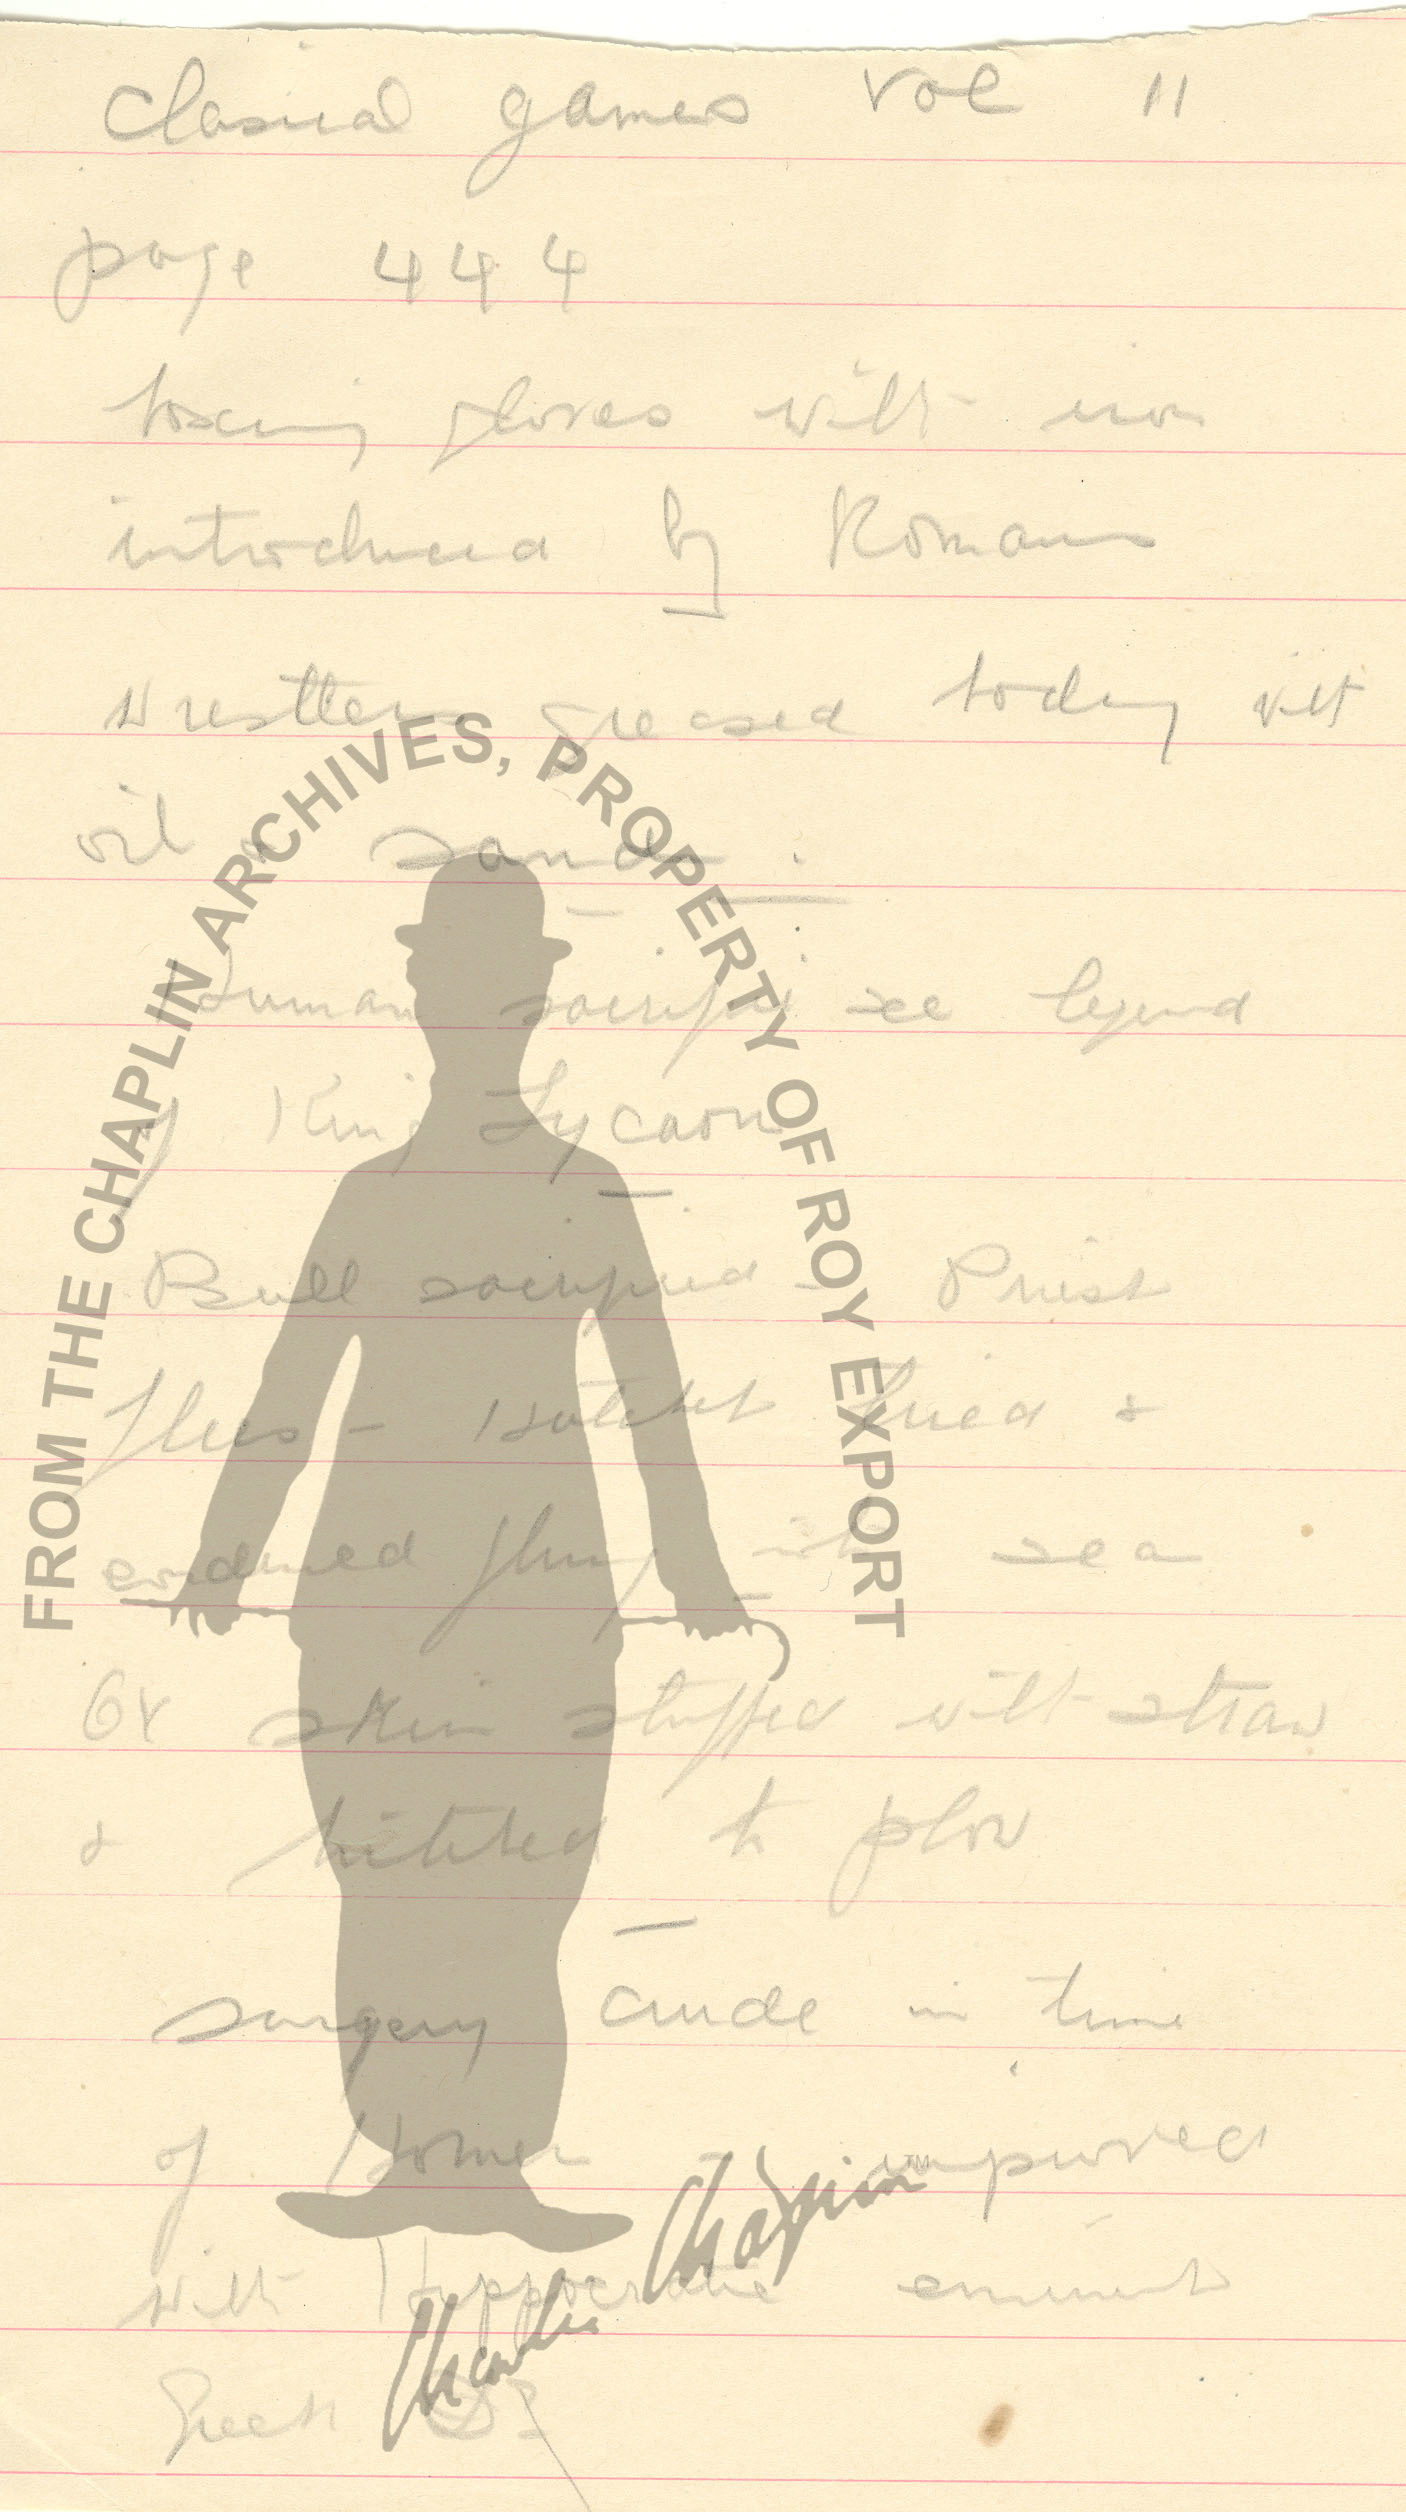 Clasical games vol 11
page 444
boxing gloves with iron
introduced by Romans
Wrestlers greased today with
oil & sand.
Human sacrifice see legend
of King Lycaon
Bull sacrificed - Priest
flees - Hatchet tried &
condemed flung into sea
Ox skin stuffed with straw
& hitched to plow
surgery crude in time
of Homer improved
with Hyppocratie eminent
Greek Dr
FROM THE CHAPLIN ARCHIVES, PROPERTY OF ROY EXPORT
Charlie Chaplin™